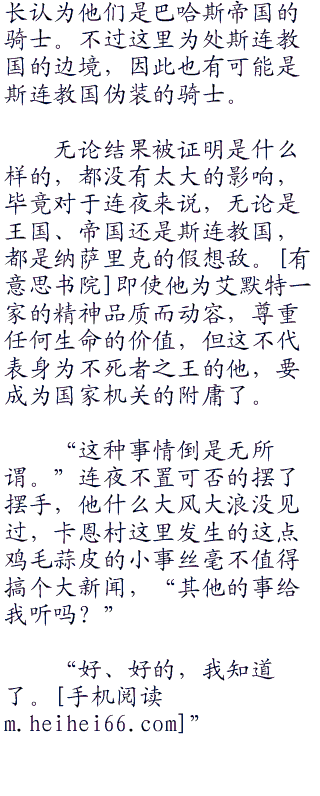 长认为他们是巴哈斯帝国的
骑士。不过这里为处斯连教
国的边境，因此也有可能是
斯连教国伪装的骑士。
无论结果被证明是什么
样的，都没有太大的影响，
毕竟对于连夜来说，无论是
王国、帝国还是斯连教国，
都是纳萨里克的假想敌。[有
意思书院]即使他为艾默特一
家的精神品质而动容，尊重
任何生命的价值，但这不代
表身为不死者之王的他，要
成为国家机关的附庸了。
“这种事情倒是无所
谓。”连夜不置可否的摆了
摆手，他什么大风大浪没见
过，卡恩村这里发生的这点
鸡毛蒜皮的小事丝毫不值得
搞个大新闻，“其他的事给
我听吗？”
“好、好的，我知道
了。[手机阅读
m.heihei66.com]”